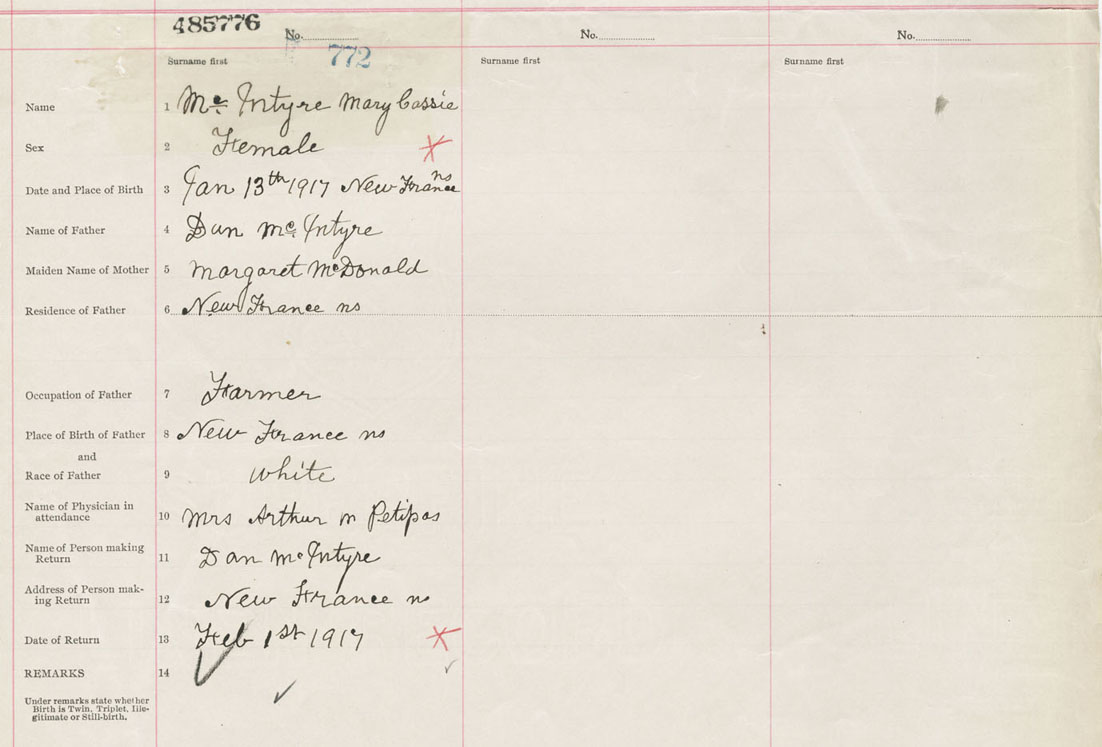 485776 No. No. No.
772
Surname first Surname first Surname first
Name 1 Mc Intyre Mary Cassie
Sex 2 Female
Date and Place of Birth 3 Jan 13th 1917 New France ns
Name of Father 4 Dan Mc Intyre
Maiden Name of Mother 5 Margaret McDonald
Residence of Father 6 New France ns
Occupation of Father 7 Farmer
Place of Birth of Father 8 New France ns
and
Race of Father 9 white
Name of Physician in
attendance 10 Mrs Arthur m Petipas
Name of Person making
Return 11 Dan McIntyre
Address of Person mak-
ing Return 12 New France ns
Date of Return 13 Feb 1st 1917
REMARKS 14
Under remarks state whether
Birth is Twin, Triplet, Ille-
gitimate or Still-birth.